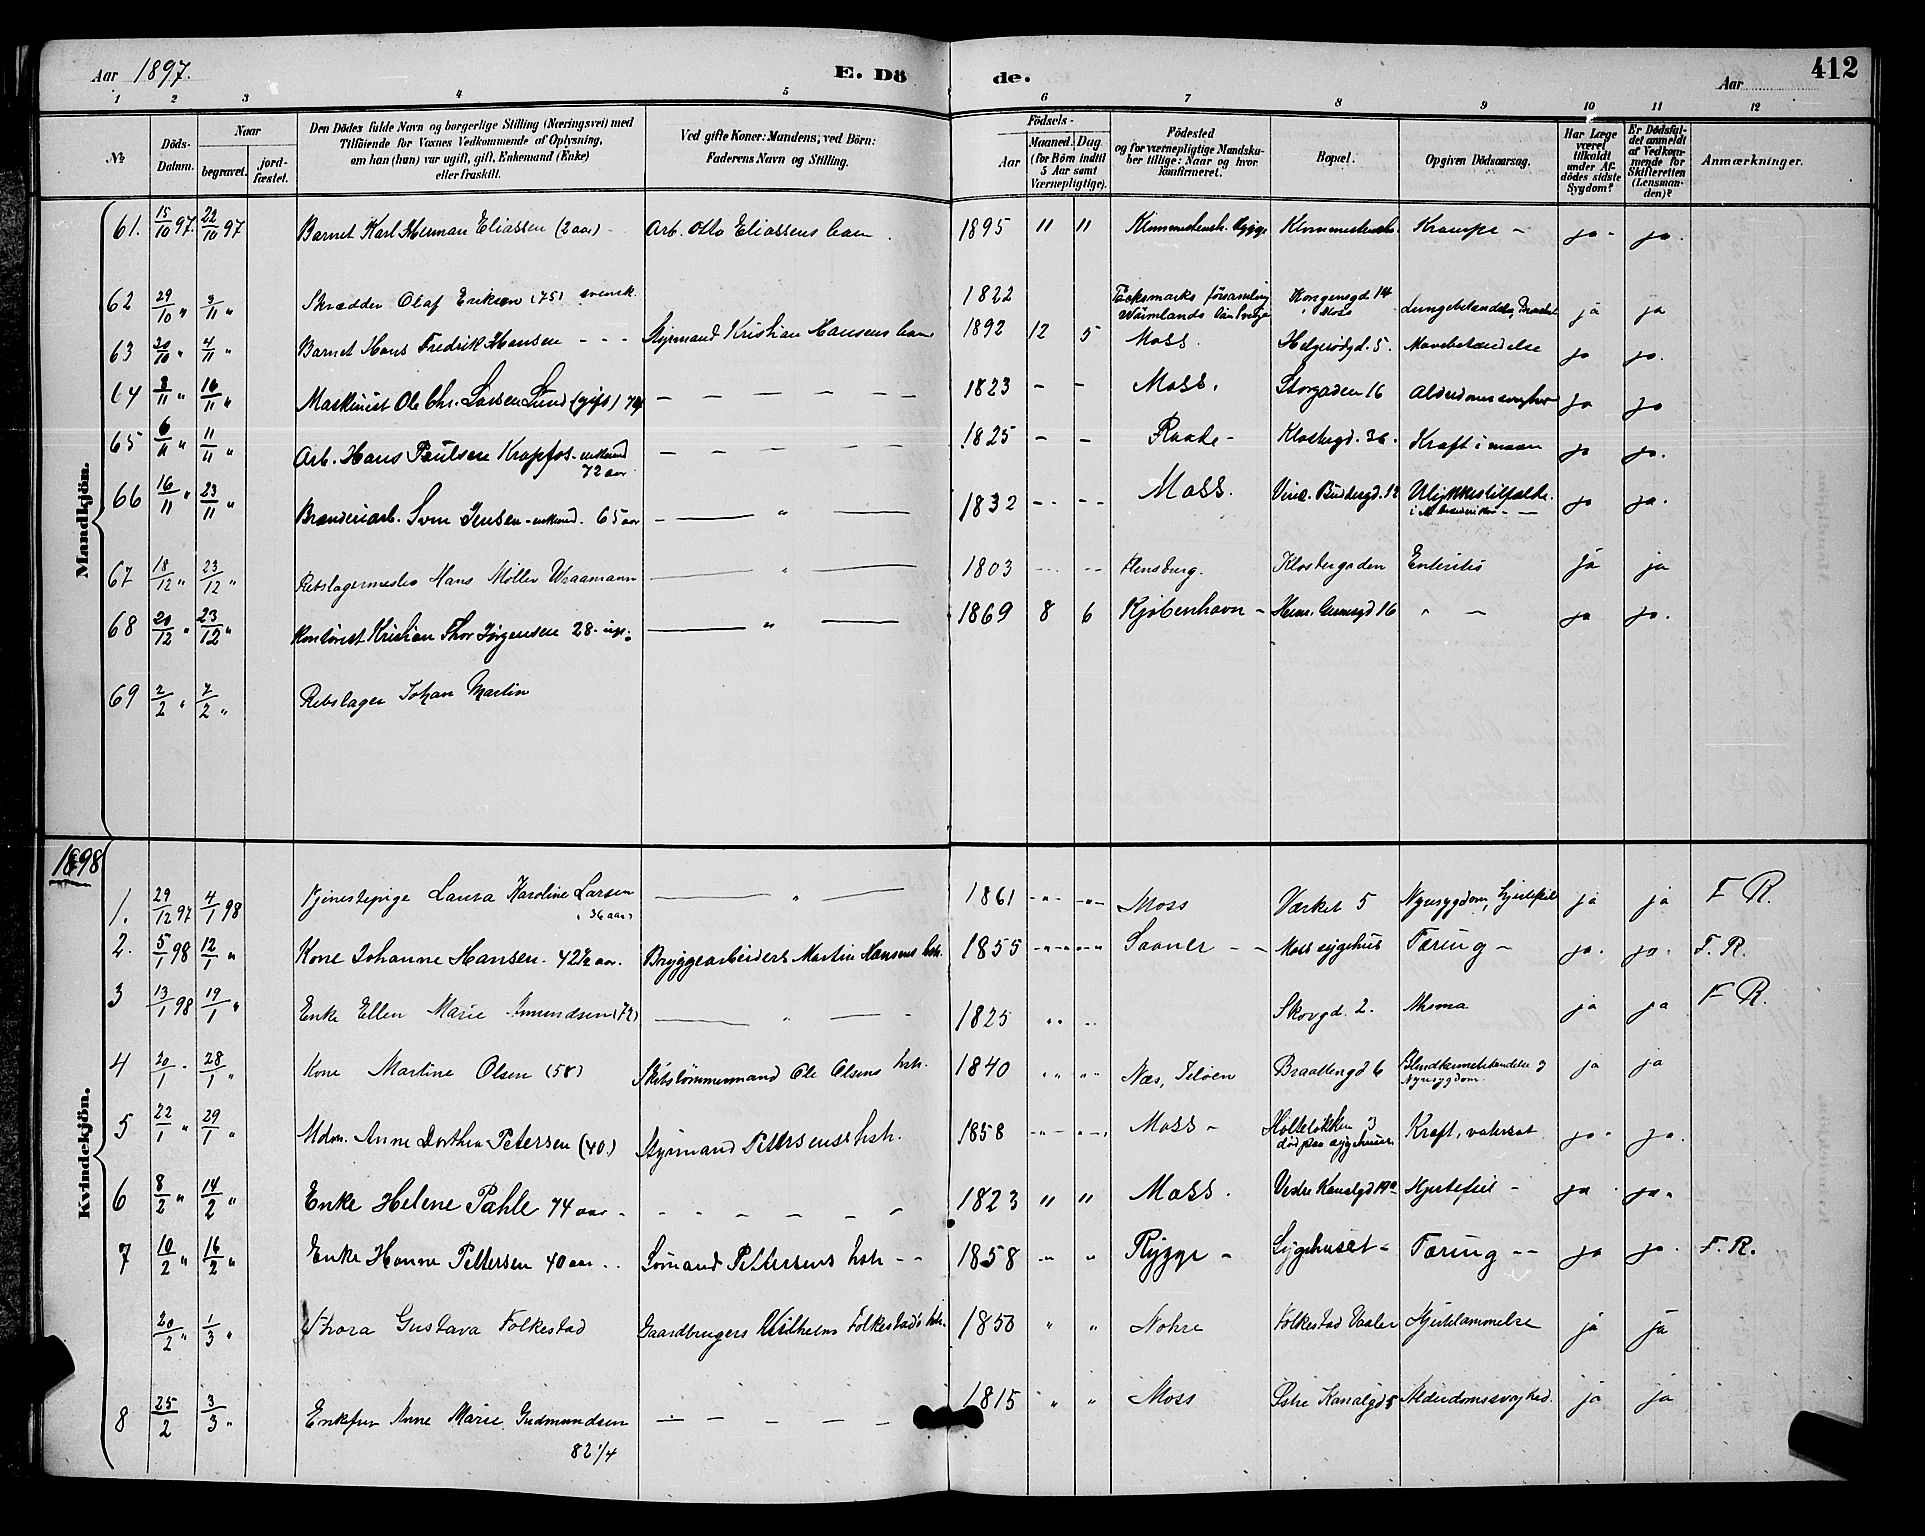 Aar 1897. E. Dö de. Aar 412
1 2 3 4 5 6 7 8 9 10 11 12
No Döds-Datum. Naar begravet. jord-fæstet. Den Dödes fulde Navn og borgerlige Stilling (Næringsvei) med Tilföiende for Voxnes Vedkommende af Oplysning, om han (hun) var ugift, gift, Enkemand (Enke) eller fraskilt. Ved gifte Koner: Mandens, ved Börn: Faderens Navn og Stilling. Födsels- Aar Maaned. Dag (for Börn indtil 5 Aar samt Værnepligtige). Födested og for værnepligtige Mandskaber tillige: Naar og hvor konfirmeret. Bopæl. Opgiven Dödsaarsag. Har Læge været tilkaldt under Afdödes sidste Sygdom? Er Dödsfaldet anmeldt af Vedkommende for Skifteretten (Lensmanden)? Anmærkninger.
Mandkjön.
61. 15/10 97. 22/10 97 Barnet Karl Herman Eliassen (2 aar) - Arb. Otto Eliassens barn. 1895 " " Krampe - ja - ja.
62 29/10 " 3/11 " Skrædder Olaf Erikson (75) svensk. 1822 Församling Wärmlands Kongensgd. 14 Moss ja ja
63 30/10 " 4/11 " Barnet Hans Fredrik Hansen - - - Styrmand Kristian Hansens barn 1892 12 5 Moss. Helgerødgd. 5. Mavebetændelse ja ja.
64 8/11 " 16/11 " Maskinist Ole Chr. Larsen Lund (gift) 74 - - - - - 1823 - - Moss. Storgaden 16 Alderdomssvaghed ja ja
65 6/11 " 11/11 " Arb. Hans Paulsen Krapfos - enkemd 72 aar - - - - - 1825 - - Raade - Klostergd. 36. Kræft i maven ja ja.
66 16/11 " 23/11 " Brænderiarb. Sven Jensen - enkemd. 65 aar - — " — 1832 - - - - Moss. Vinc. Budbergd. 12 Ulykkestilfælde. ja ja.
67 18/12 " 23/12 " Rebslagermester Hans Møller Wraamann — " — 1803 - - - - Flensburg. Klostergaden Enteritis ja ja
68 20/12 " 23/12 " Kontorist Kristian Thor Jørgensen 28 - ug. — " — 1869 8 6 Kjøbenhavn - Henr. Gernersgd 16 " - ja ja.
69 2/2 " 7/2 " Rebslager Johan Martin
1898
Kvindekjön.
1. 29/12 97 4/1 98 Tjenestepige Laura Karoline Larsen (36 aar) — " — 1861 -"- -"- Moss Værket 5 Nyresygdom, Hjertefeil ja ja F. R.
2. 5/1 98 12/1 " Kone Johanne Hansen. 42½ aar. Bryggearbeiders Martin Hansens hstr. 1855 -"- -"- Saaner - - Moss sygehus Tæring - ja. ja. F. R.
3 13/1 98 19/1 " Enke Ellen Marie Amundsen (72) — " — 1825 " " Skovgd. 2. ja ja F. R.
4 20/1 - 28/1 " Kone Martine Olsen (58) Skibstømmermand Ole Olsens hstr. 1840 " " Næs, Jeløen Braatengd 6 Blindtarmsbetændelse og Nyresygdom. ja ja
5 22/1 " 29/1 " Mdm. Anne Dorthea Petersen (40.) Styrmand Petersens hstr. 1858 -"- -"- Moss - Holteløkken 3 død paa sygehuset. Kræft, vatersot ja - ja.
6 8/2 " 14/2 " Enke Helene Pahle 74 aar - - - - - - - 1823 " " Moss. Vestre Kanalgd 19a Hjertefeil - ja ja.
7 10/2 " 16/2 " Enke Hanne Pettersen 40 aar .. Sømand Pettersens hstr - - 1858 " " Rygge - Sygehuset - Tæring - - ja ja. F. R.
20/2 " 1/3 " Thora Gustava Folkestad Gaardbrugers Vilhelm Folkestad's hstr. 1850 " " Folkestad Vaaler Hjertelammelse ja ja
8 25/2 3/3 " Enkefru Anne Marie Gudmundsen 82 1/4 - - - - - 1815 " " Moss Østre Kanalgd 5 Alderdomssvaghed. ja ja